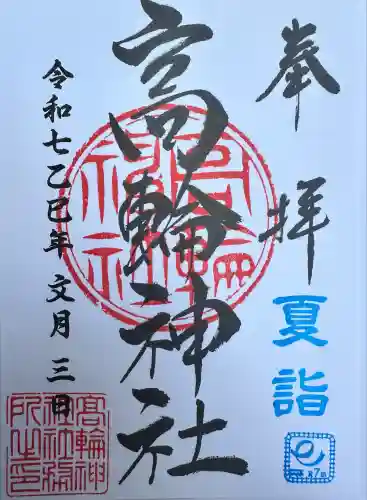 奉拝
夏詣
第7回
高輪神社
高輪神社
令和七乙巳年 文月 三日
高輪神社務所之印